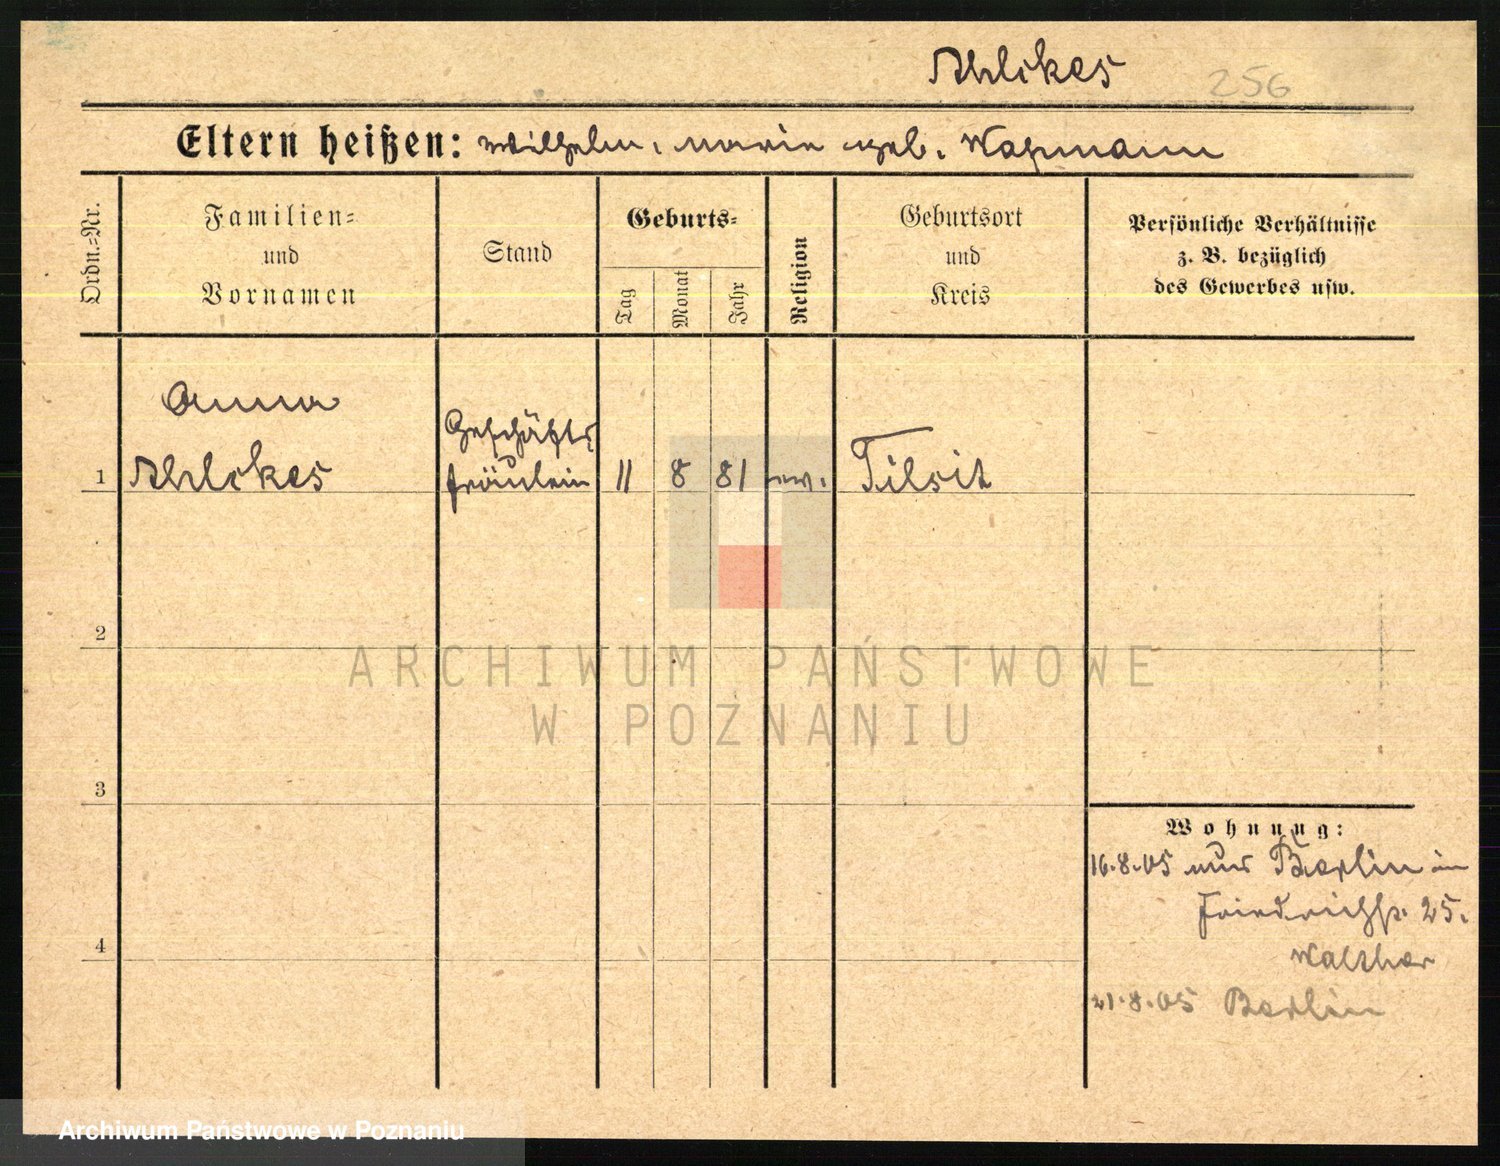 Ahlikes 256
Eltern heißen: Wilhelm, Marie geb. Waßmann
Ordn.=Nr.
Familien=
und
Vornamen
Stand
Geburts=
Tag
Monat
Jahr
Religion
Geburtsort
und
Kreis
Persönliche Verhältnisse
z. B. bezüglich
des Gewerbes usw.
Anna
1 Ahlikes
Geschäfts
fräulein
11 8 81 ev. Tilsit
2
3
4
Wohnung:
16.8.05 aus Berlin in
Friedrichstr. 25.
Walther
21.8.05 Berlin
ARCHIWUM PAŃSTWOWE
W POZNANIU
Archiwum Państwowe w Poznaniu